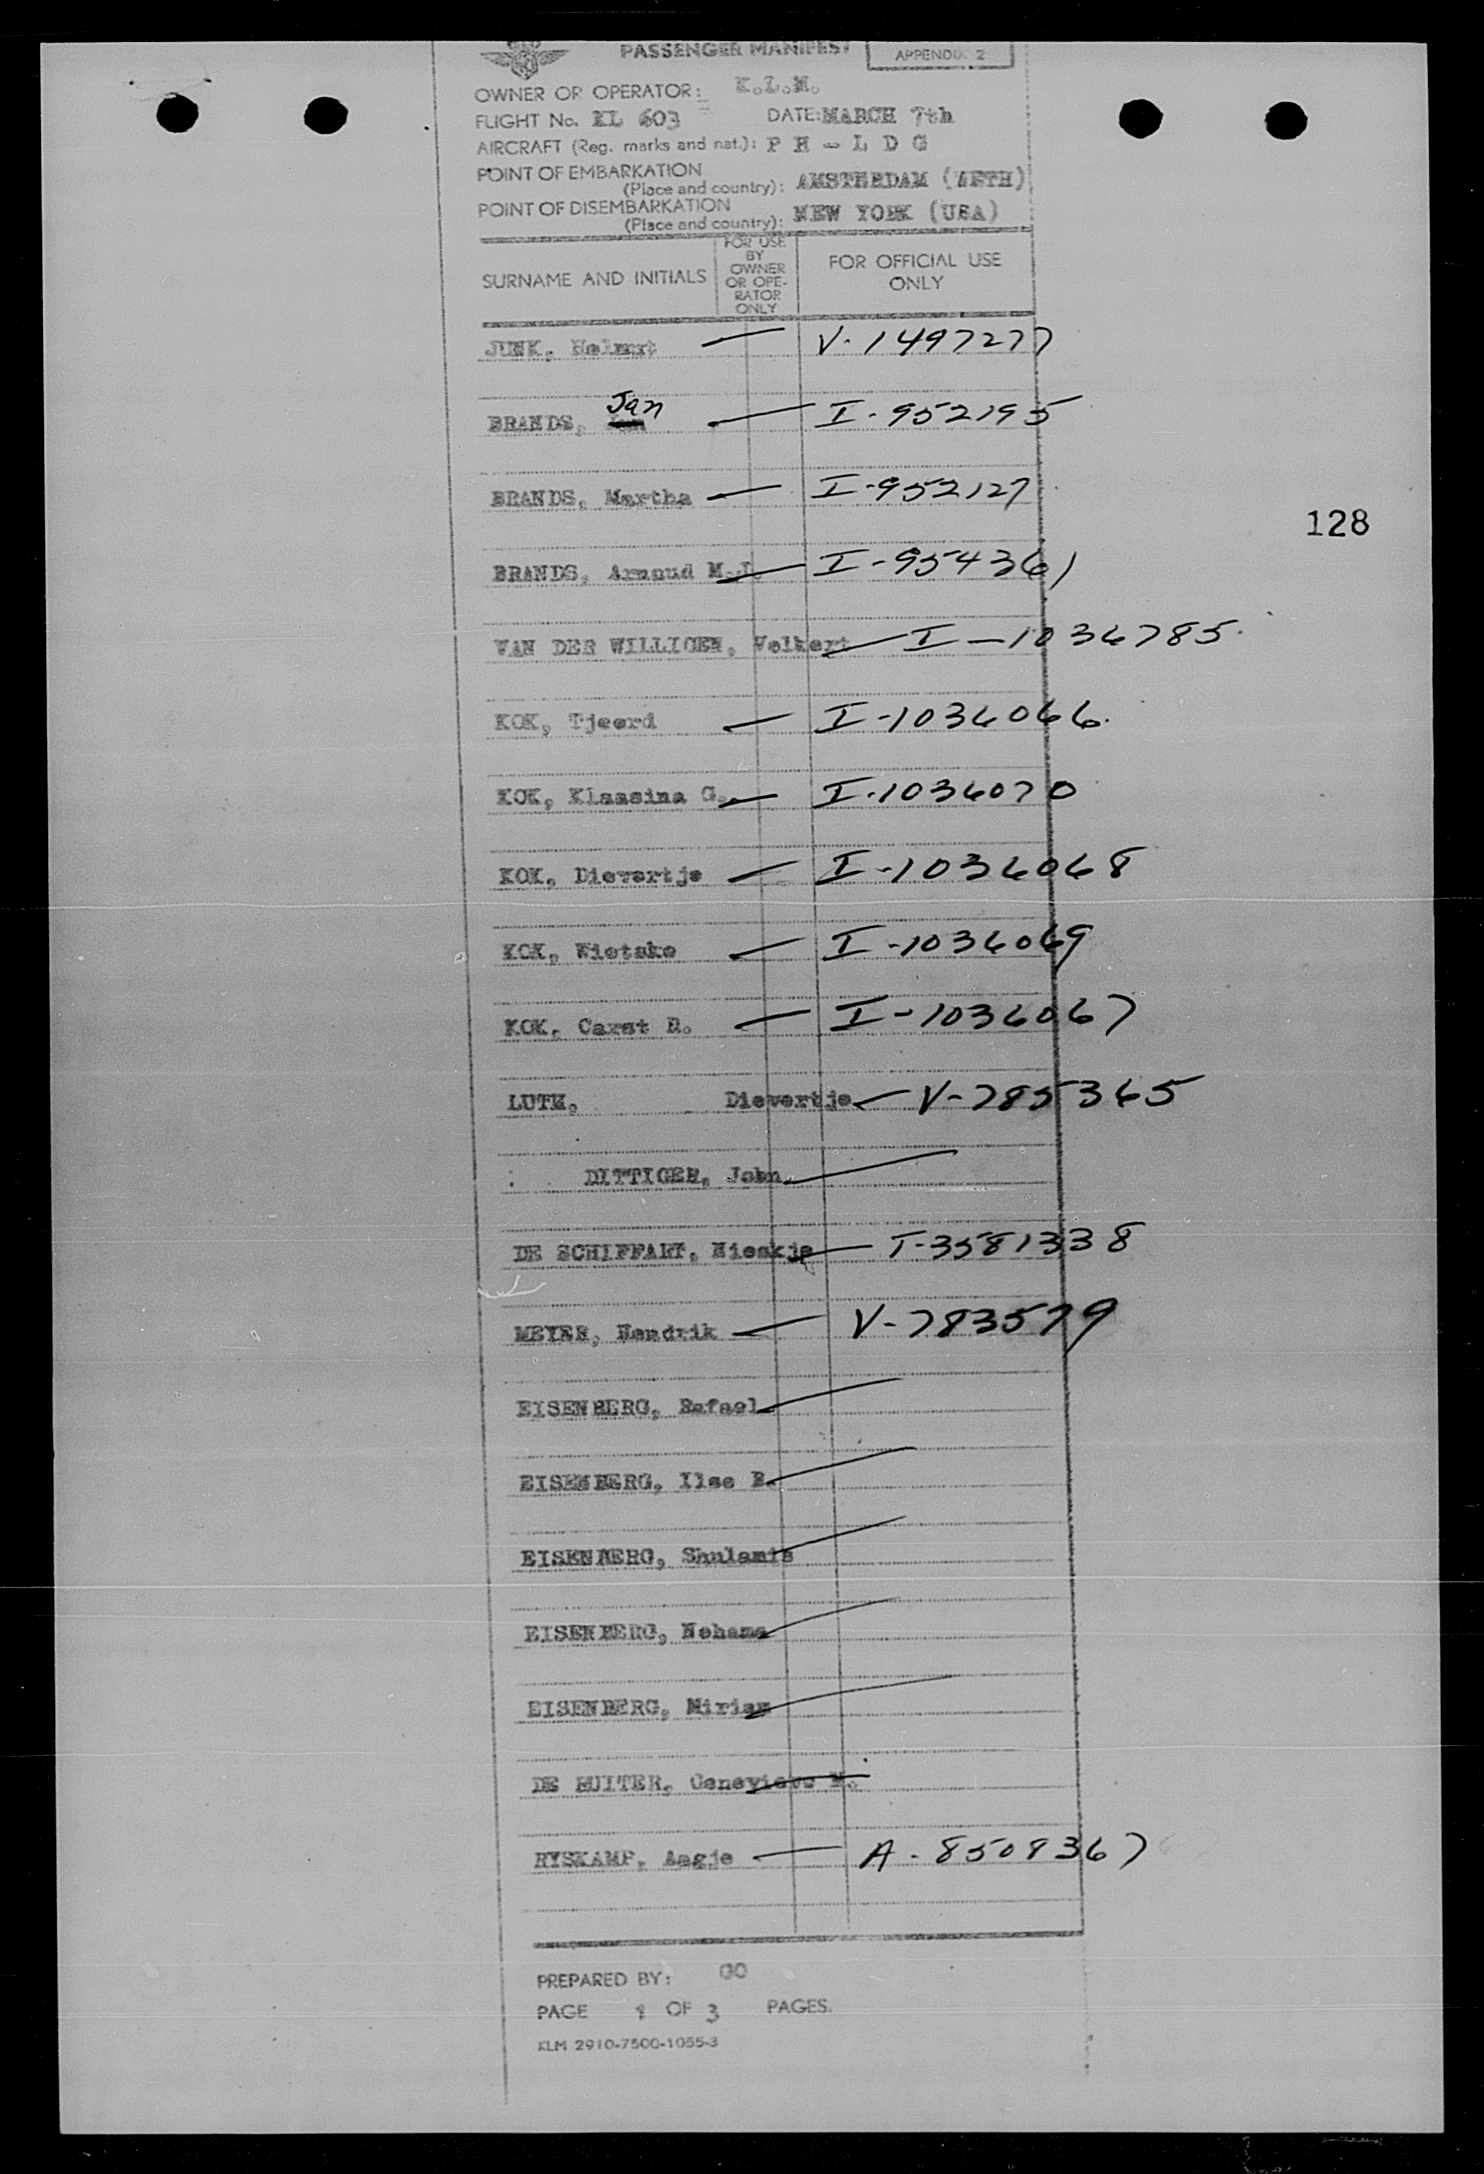 PASSENGER MANIFEST
APPENDIX 2
OWNER OR OPERATOR: K.L.M.
FLIGHT No. KL 603 DATE: MARCH 7th
AIRCRAFT (Reg. marks and nat.): P H - L D G
POINT OF EMBARKATION
(Place and country): AMSTERDAM (NETH)
POINT OF DISEMBARKATION
(Place and country): NEW YORK (USA)
SURNAME AND INITIALS
FOR USE
BY
OWNER
OR OPE-
RATOR
ONLY
FOR OFFICIAL USE
ONLY
JUNK, Helmut V-1497277
BRANDS, Jan I-952195
BRANDS, Martha I-952127
128
BRANDS, Arnoud M.J. I-954361
VAN DER WILLIGEN, Volkert I-1036785
KOK, Tjeerd I-1036066
KOK, Klaasina G. I-1036070
KOK, Dievertje I-1036068
KOK, Wietske I-1036069
KOK, Carst R. I-1036067
LUTH, Dievertje V-785365
DITTIGER, John
DE SCHIFFART, Hieskje T-3581338
MEYER, Hendrik V-783579
EISENBERG, Rafael
EISENBERG, Ilse B.
EISENBERG, Shulamis
EISENBERG, Nehama
EISENBERG, Miriam
DE RUITER, Genevieve M.
RYSKAMP, Aagje A-8508367
PREPARED BY: GO
PAGE 1 OF 3 PAGES.
KLM 2910-7500-1055-3